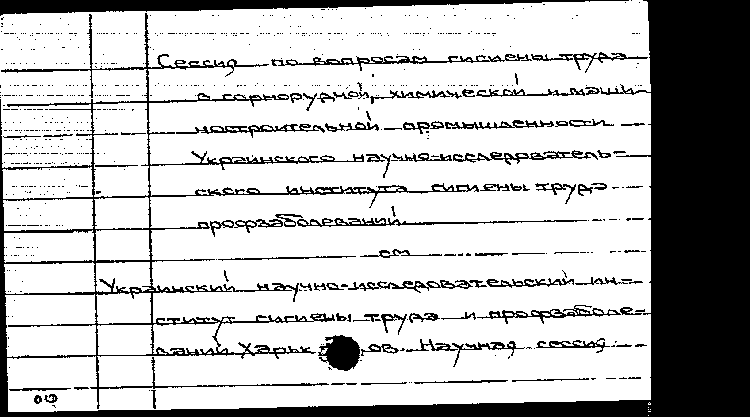 Сессия по вопросам гигиены труда
в горнорудной, химической и маши-
ностроительной промышленности
Украинского научно-исследователь-
ского института гигиены труда
профзаболеваний.
см
Украинский научно-исследовательский ин-
ститут гигиены труда и профзаболе-
ваний Харьков. Научная сессия